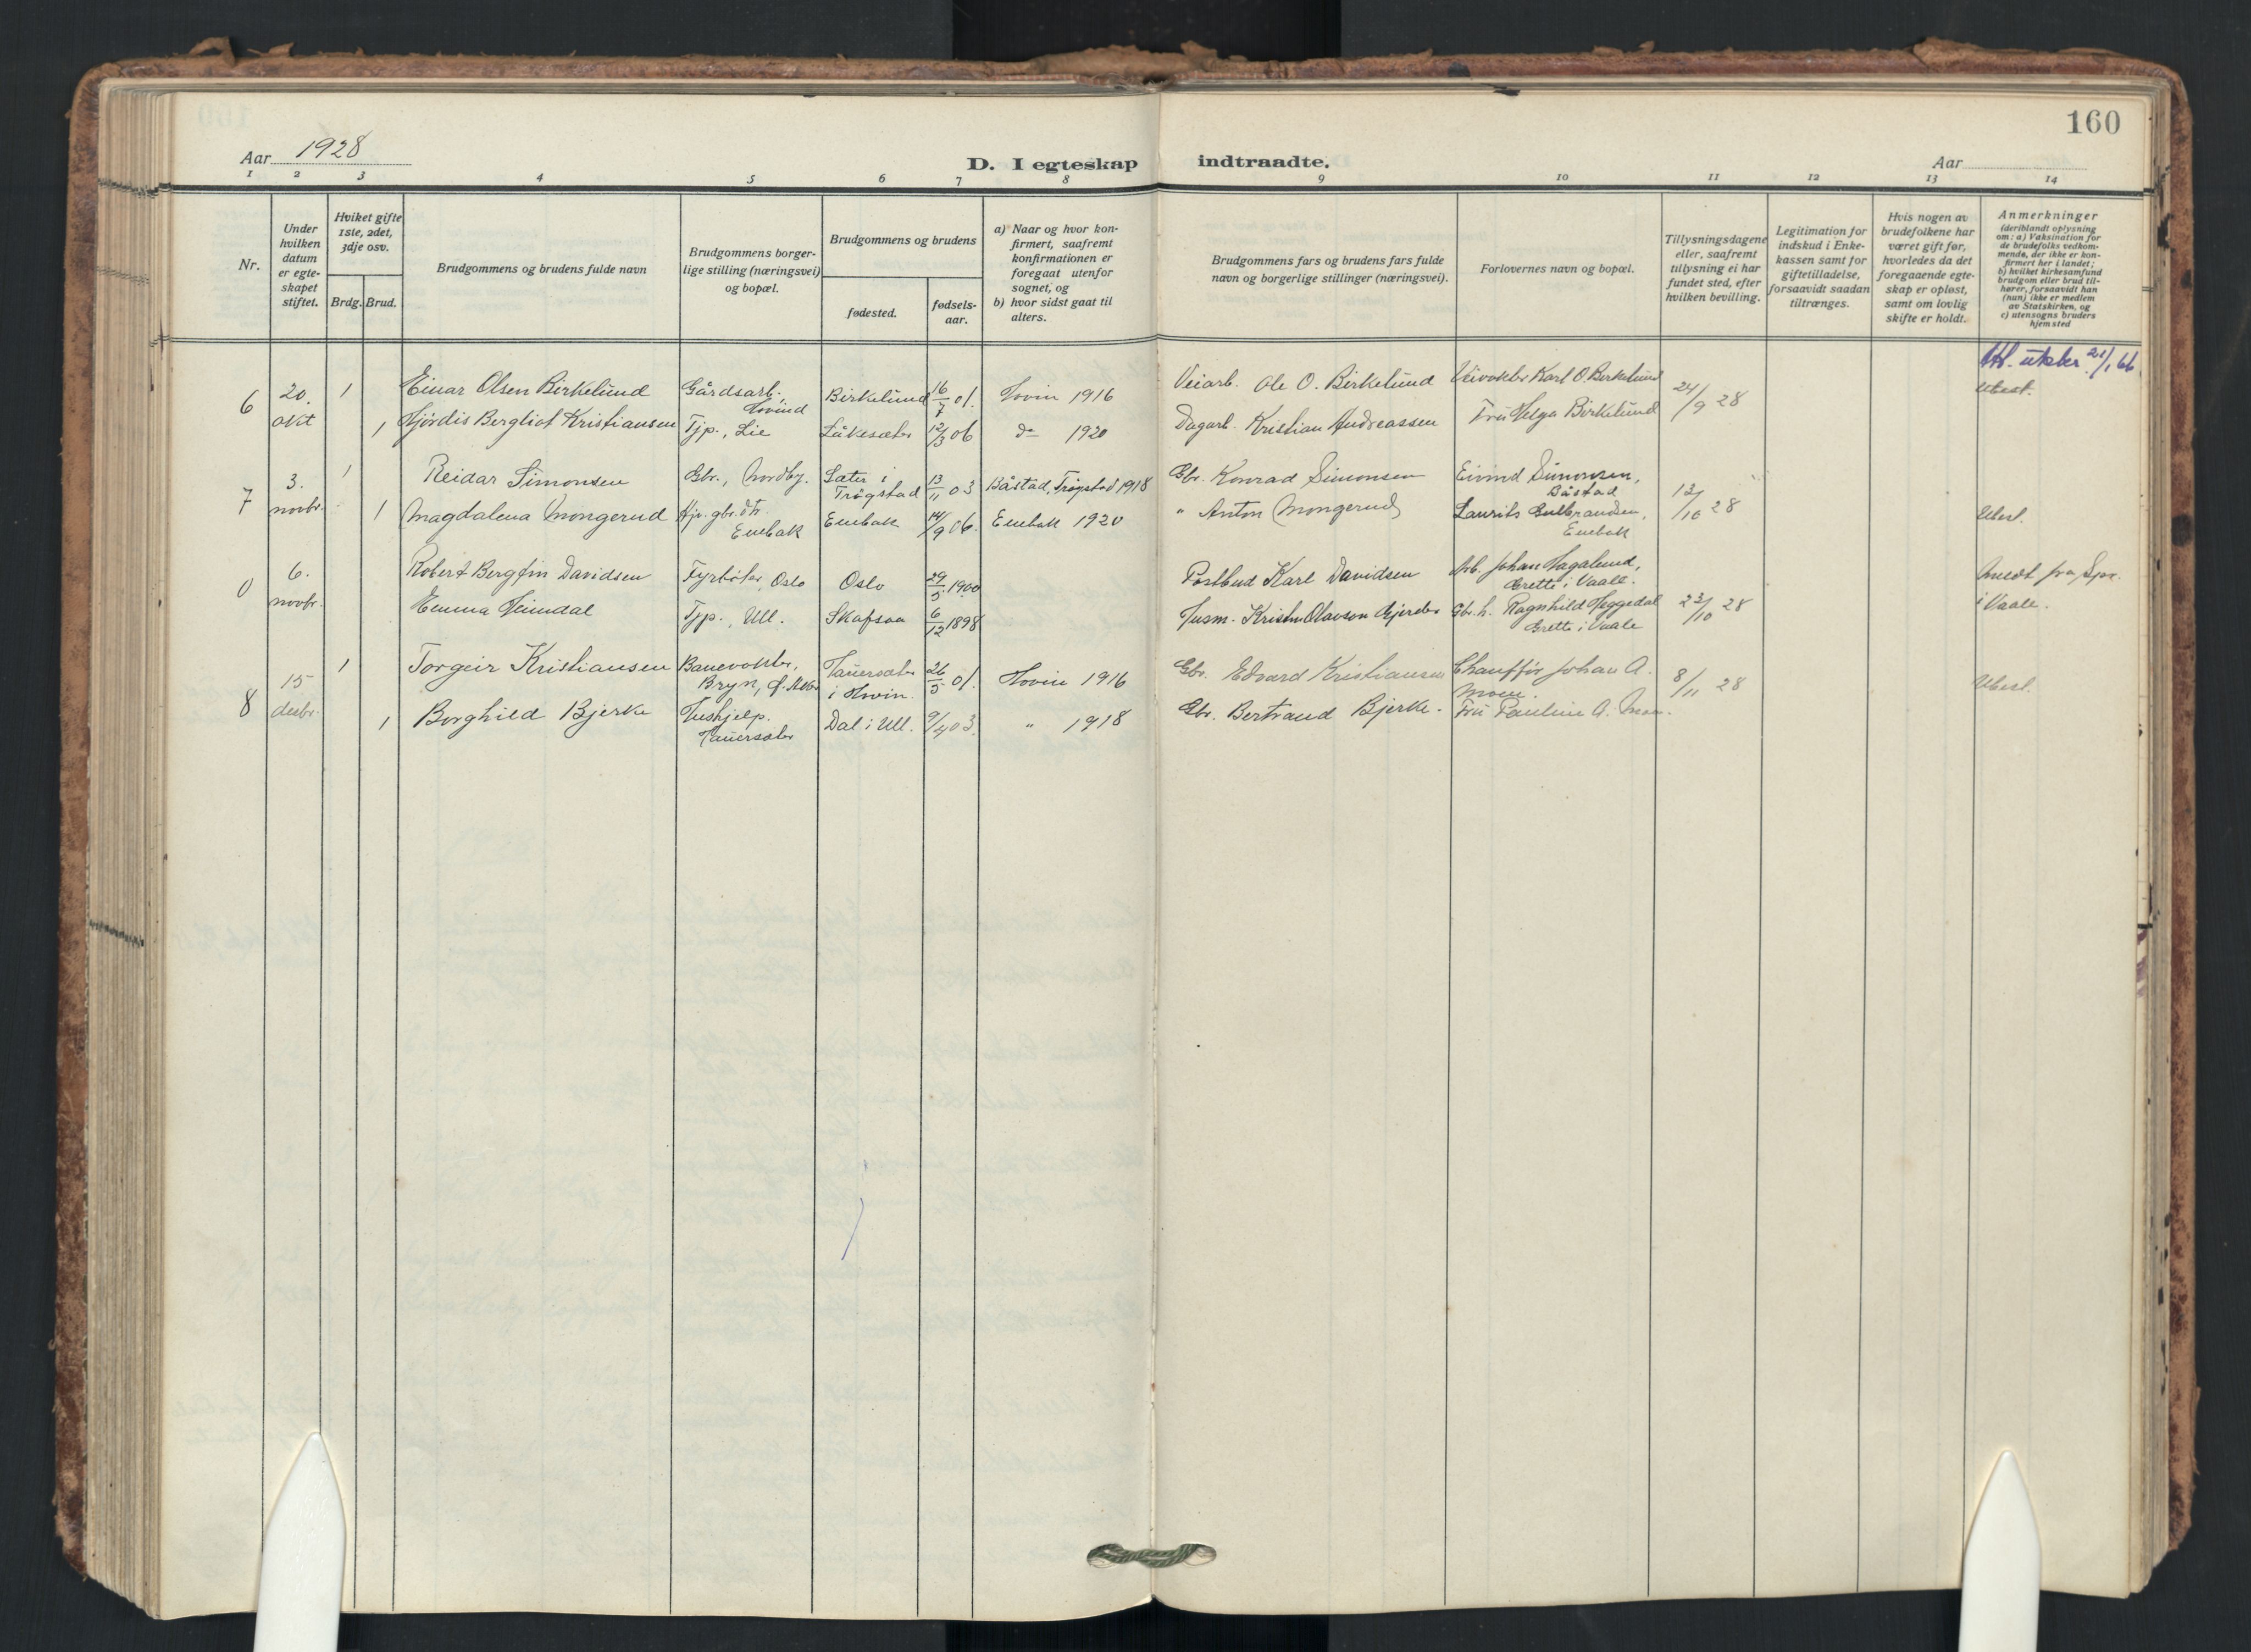 160
Aar 1928
D. I egteskap indtraadte.
Aar
1 2 3 4 5 6 7 8 9 10 11 12 13 14
Nr.
Under
hvilken
datum
er egte-
skapet
stiftet.
Hviket gifte
1ste, 2det,
3dje osv.
Brdg. Brud.
Brudgommens og brudens fulde navn
Brudgommens borger-
lige stilling (næringsvei)
og bopæl.
Brudgommens og brudens
fødested.
fødsels-
aar.
a) Naar og hvor kon-
firmert, saafremt
konfirmationen er
foregaat utenfor
sognet, og
b) hvor sidst gaat til
alters.
Brudgommens fars og brudens fars fulde
navn og borgerlige stillinger (næringsvei).
Forlovernes navn og bopæl.
Tillysningsdagene
eller, saafremt
tillysning ei har
fundet sted, efter
hvilken bevilling.
Legitimation for
indskud i Enke-
kassen samt for
giftetilladelse,
forsaavidt saadan
tiltrænges.
Hvis nogen av
brudefolkene har
været gift før,
hvorledes da det
foregaaende egte-
skap er opløst,
samt om lovlig
skifte er holdt.
Anmerkninger
(deriblandt oplysning
om: a) Vaksination for
de brudefolks vedkom-
mende, der ikke er kon-
firmert her i landet;
b) hvilket kirkesamfund
brudgom eller brud til-
hører, forsaavidt han
(hun) ikke er medlem
av Statskirken, og
c) utensogns bruders
hjemsted
6 20. okt 1 Einar Olsen Birkelund Gårdsarb., Hovind Birkelund 16/7 01. Hovin 1916 Veiarb. Ole O. Birkelund Veivokter Karl O. Birkelund 24/9 28 Ubest.
1 Hjördis Bergliot Kristiansen Tjp., Lie Låkesæter 12/3 06 do 1920 Dagarb. Kristian Andreassen Fru Helga Birkelund
7 3. novbr. 1 Reidar Simonsen Gbr., Nordby. Sæter i Trögstad 13/11 03 Båstad, Trögstad 1918 Gbr. Konrad Simonsen Eivind Simonsen, Båstad 13/10 28 Ubest.
1 Magdalena Mongerud Hjv. gbr.dtr. Enebak Enebak 14/9 06. Enebak 1920 " Anton Mongerud Laurits Gulbrandsen, Enebak
0 6. novbr. Robert Bergfin Davidsen Fyrböter, Oslo Oslo 29/5 1900 Postbud Karl Davidsen Arb. Johan Hagalund, Grette i Vaale. 23/10 28 Medt fra Spr. i Vaale.
Emma Heimdal Tjp., Ull. Skafsaa 6/12 1898 Husm. Kristen Olavson Gjerder Gbr.h. Ragnhild Heggedal Grette i Vaale
8 15 desbr. 1 Torgeir Kristiansen Banevokter, Bryn, Ø. Aker Tauersæter i Hovin. 26/5 01. Hovin 1916 Gbr. Edvard Kristiansen Chauffför Johan A. Moen. 8/11 28 Ubest.
1 Borghild Bjerke Hushjelp. Tauersæter Dal i Ull. 9/4 03. " 1918 Gbr. Bertrand Bjerke. Fru Pauline A. Moen.